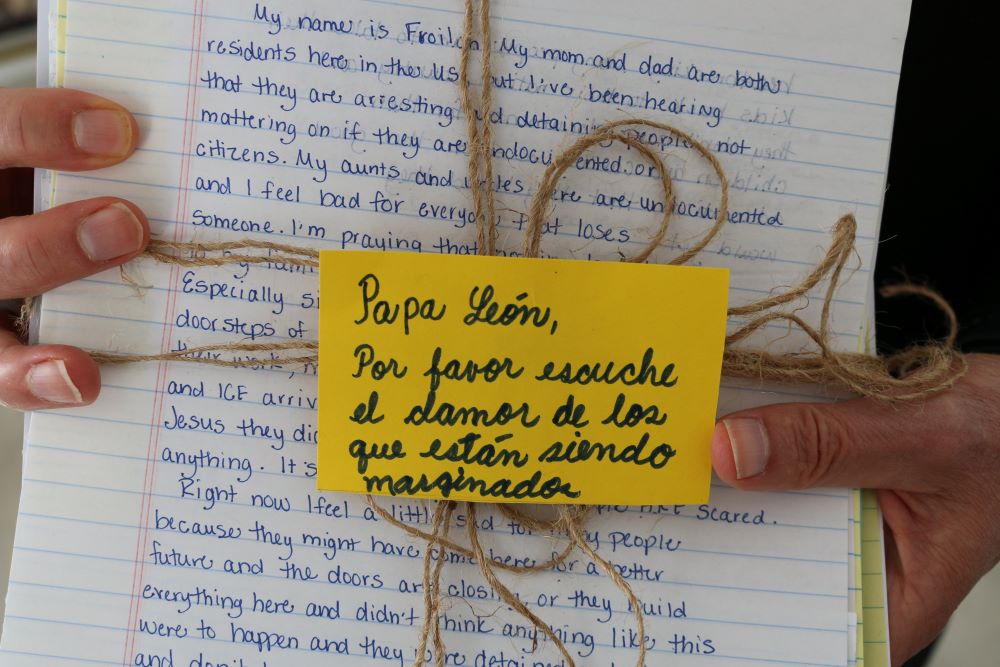 My name is Froilan My mom and dad are both
residents here in the US but I've been hearing
that they are arresting and detaining people not
mattering on if they are undocumented or
citizens. My aunts and uncles here are undocumented
and I feel bad for everyone that loses
someone. I'm praying that
to my
Especially
doorsteps of
their work,
and ICE
Jesus they
anything. It's
Right now I feel a little sad for my people ARE scared.
because they might have come here for a better
future and the doors are closing or they build
everything here and didn't think anything like this
were to happen and they were
and don't
Papa León,
Por favor escuche
el clamor de los
que están siendo
marginados